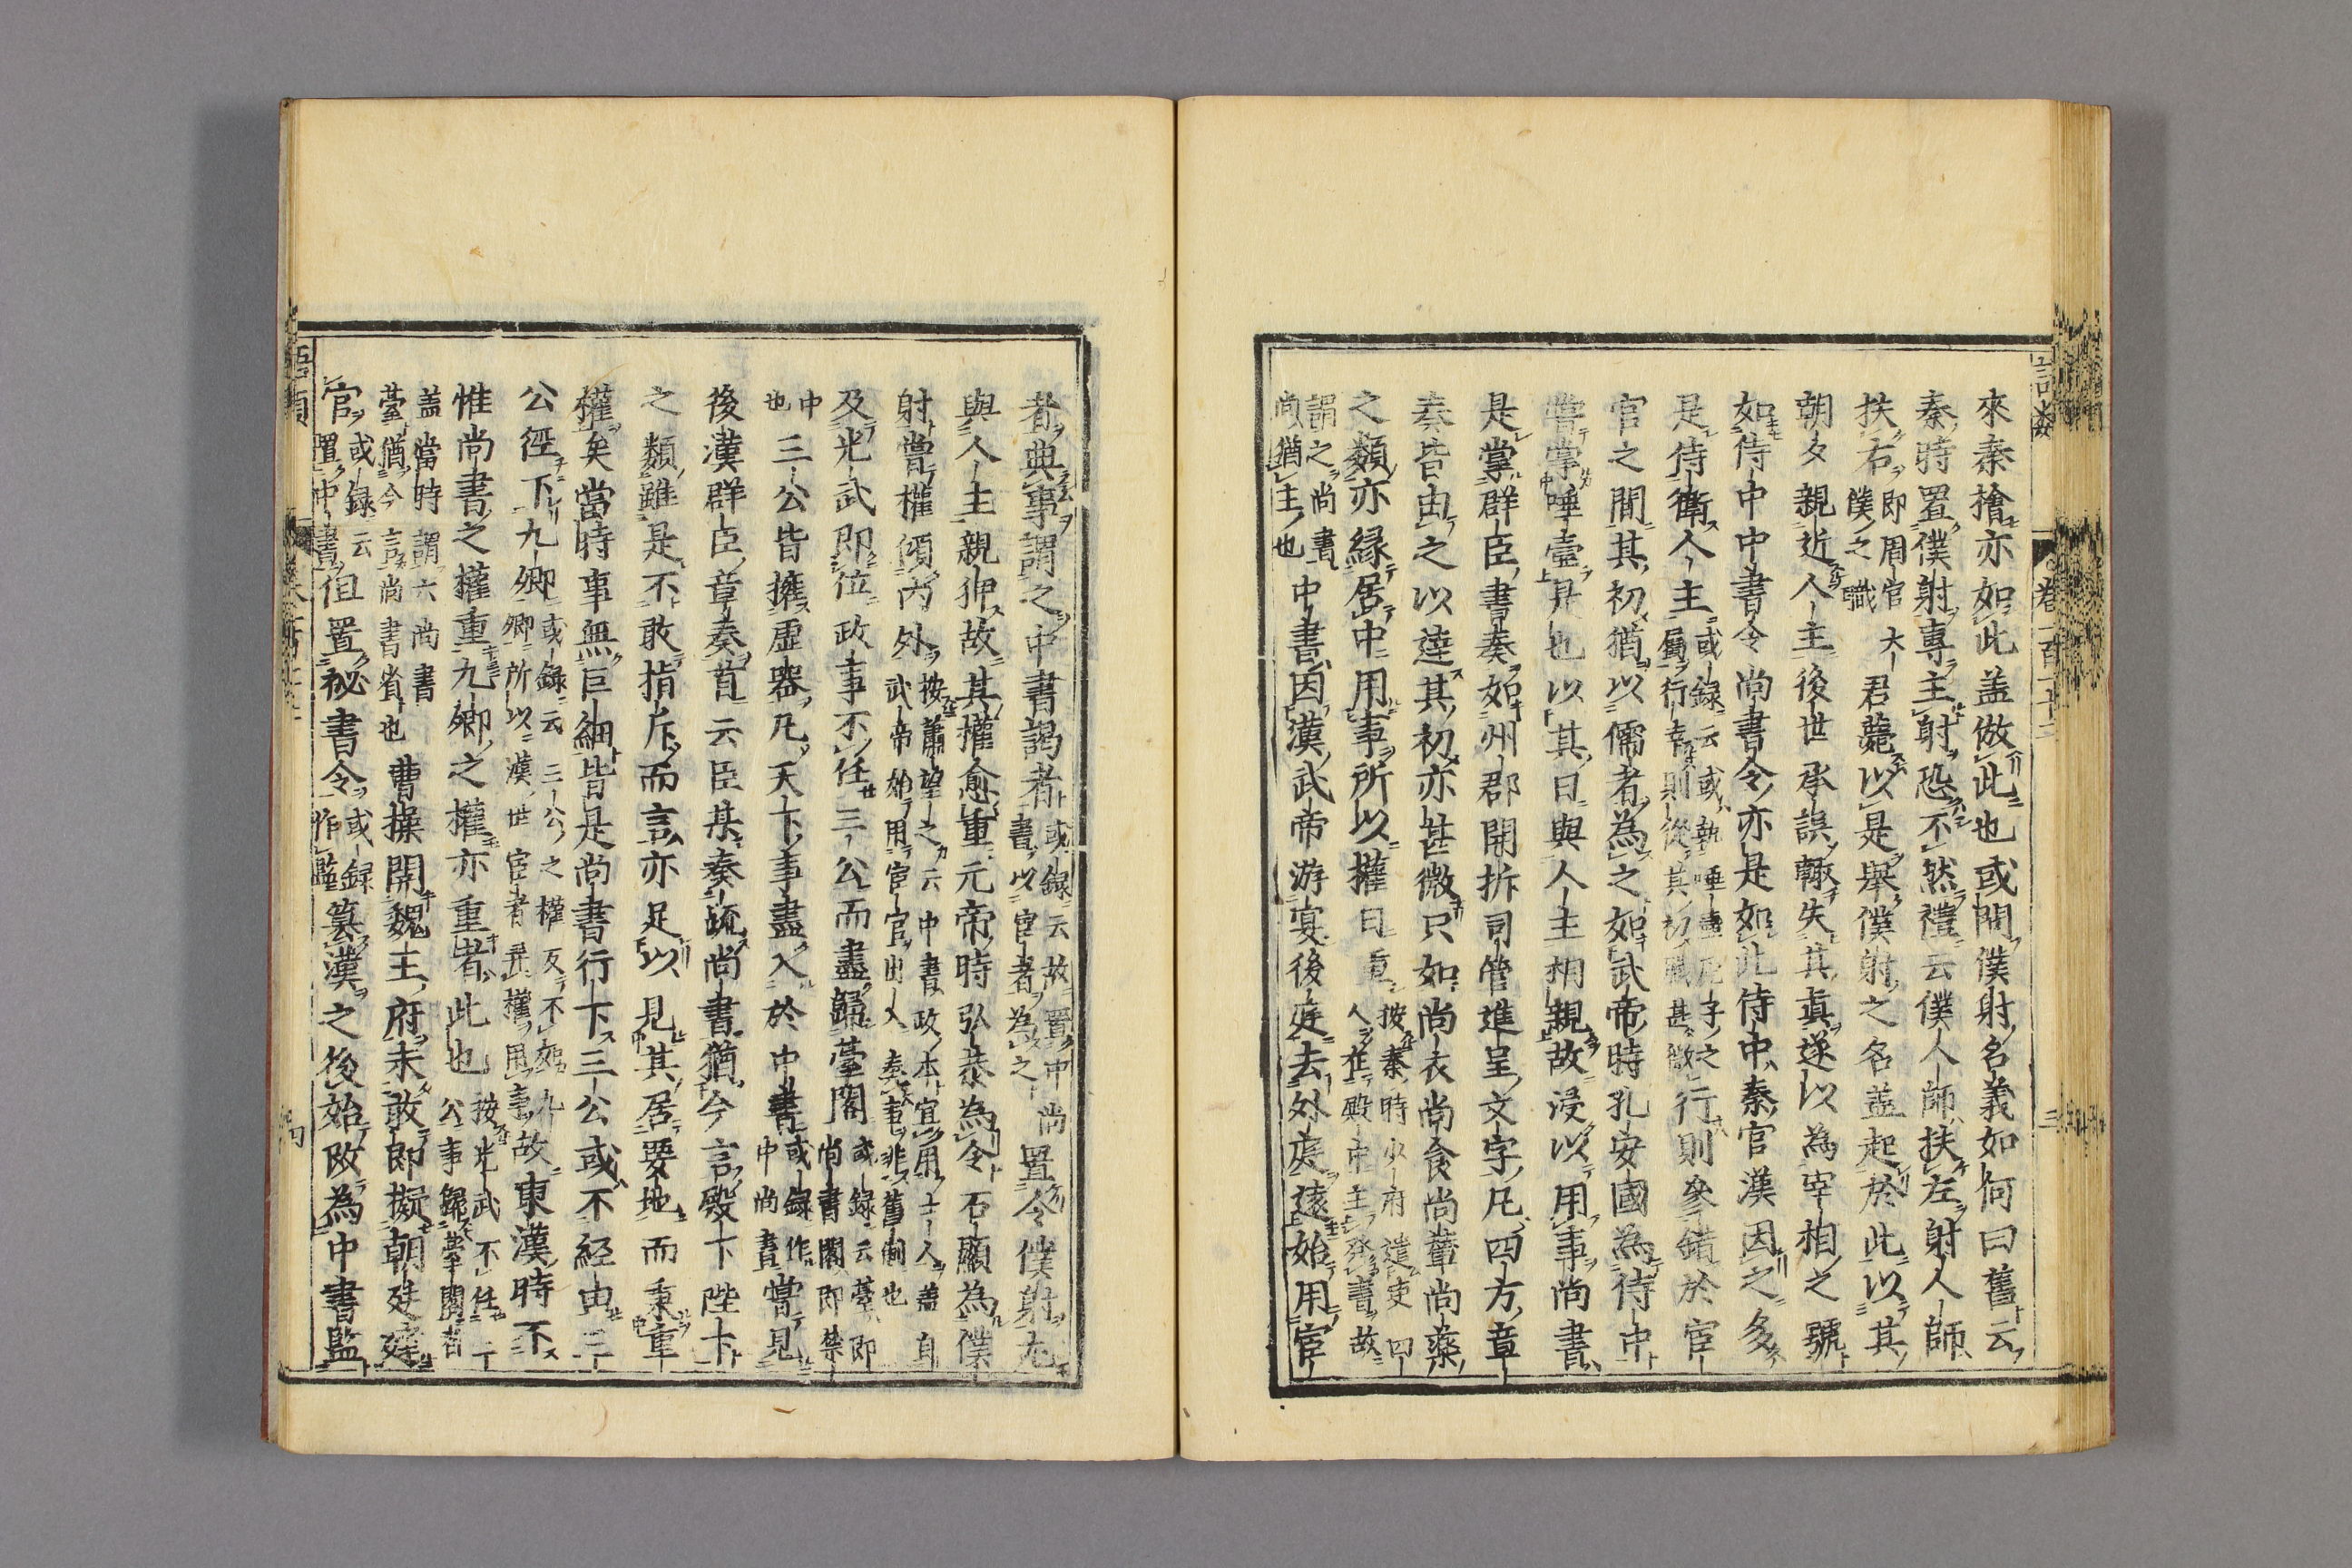 來秦檜亦如此盖倣此也或問僕射名義如何曰舊云
秦時置僕射專主射恐不然禮云僕人師扶左射人師
扶右即周官大僕之職君薨以是舉僕射之名盖起於此以其
朝夕親近人主後世承誤輙失其真遂以為宰相之號
如侍中中書令尚書令亦是如此侍中秦官漢因之多
是侍衛人主或録云或執唾壺虎子之屬行幸則從其初職甚微行則參錯於宦
官之間其初猶以儒者為之如武帝時孔安國為侍中
嘗掌唾壺是也以其日與人主相親故浸以用事尚書
是掌群臣書奏如州郡開拆司管進呈文字凡四方章
奏皆由之以達其初亦甚微只如尚衣尚食尚輦尚藥
之類亦緣居中用事所以權日重按秦時少府遣吏四人在殿中主發書故
謂之尚書尚猶主也中書因漢武帝游宴後庭去外庭遠始用宦
者典事謂之中書謁者或録云故置中書以宦者為之尚置令僕射尤
與人主親狎故其權愈重元帝時弘恭為令石顯為僕
射嘗權傾內外按蕭望之云中書政本宜用士人盖自武帝始用宦官出入奏事非舊制也
及光武即位政事不任三公而盡歸臺閣或録云臺即尚書閣即禁
中也三公皆擁虛器凡天下事盡入於中書或録作中尚書嘗見
後漢群臣章奏首云臣某奏疏尚書猶今言殿下陛下
之類雖是不敢指斥而言亦足以見其居要地而秉重
權矣當時事無巨細皆是尚書行下三公或不經由三
公徑下九卿或録云三公之權反不如九卿所以漢世宦者弄權用事故東漢時不
惟尚書之權重九卿之權亦重者此也按光武不任三公事歸臺閣者
盖當時謂六尚書臺猶今言尚書省也曹操開魏王府未敢即擬朝廷建
官或録云置中書但置祕書令或録作監篡漢之後始改為中書監